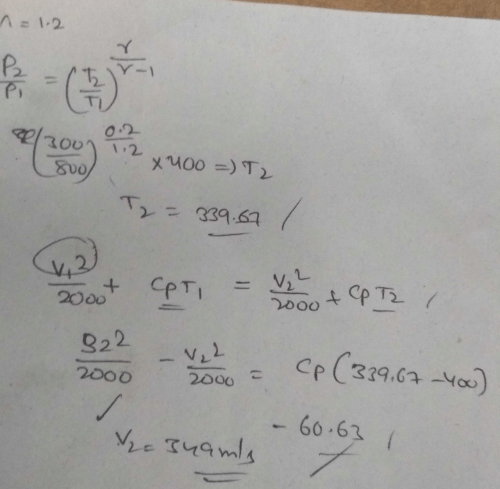 n = 1.2
P2/P1 = (T2/T1)^(γ/γ-1)
(300/800)^(0.2/1.2) × 400 => T2
T2 = 339.67 /
V1²/2000 + CpT1 = V2²/2000 + CpT2 /
32²/2000 - V2²/2000 = Cp(339.67 - 400)
- 60.63 /
V2 = 349 m/s